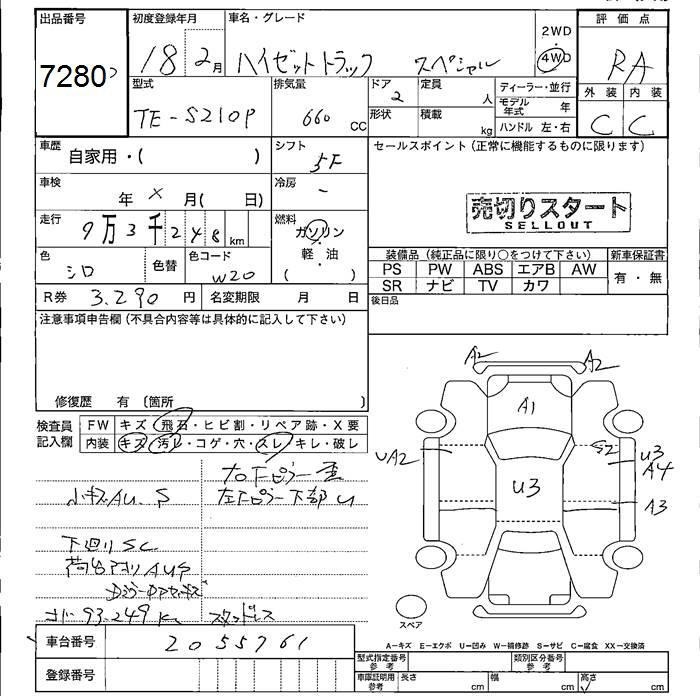 出品番号 7280
初度登録年月 18 2月
車名・グレード ハイゼットトラック スペシャル
2WD
4WD
評価点 RA
外装 内装
C C
型式 TE-S210P
排気量 660 CC
ドア 2
定員 人
形状 積載 kg
ディーラー・並行
モデル年式 年
ハンドル 左・右
車歴 自家用・( )
シフト 5F
セールスポイント(正常に機能するものに限ります)
売切りスタート
SELLOUT
車検 年 × 月( 日)
冷房 -
走行 9万3千248km
燃料 ガソリン
軽・油
( )
色 シロ 色替
色コード W20
装備品(純正品に限り○をつけて下さい) 新車保証書
PS PW ABS エアB AW 有・無
SR ナビ TV カワ
R券 3.290円 名変期限 月 日
後日品
注意事項申告欄(不具合内容等は具体的に記入して下さい)
修復歴 有(箇所
検査員記入欄
FW キズ・飛石・ヒビ割・リペア跡・X要
内装 キズ・汚レ・コゲ・穴・スレ・キレ・破レ
右下ピラー歪
小キズAU、S 左下ピラー下部U
下廻りSC
荷台アオリAU
メーター93.249Km
A2 A2
A1
UA2 S2 U3
A4
U3
A3
スペア
A-キズ E-エクボ U-凹み W-補修跡 S-サビ C-腐食 XX-交換済
車台番号 2055761
登録番号
型式指定番号参考 類別区分番号参考
車庫証明用参考 長さ cm 幅 cm 高さ cm